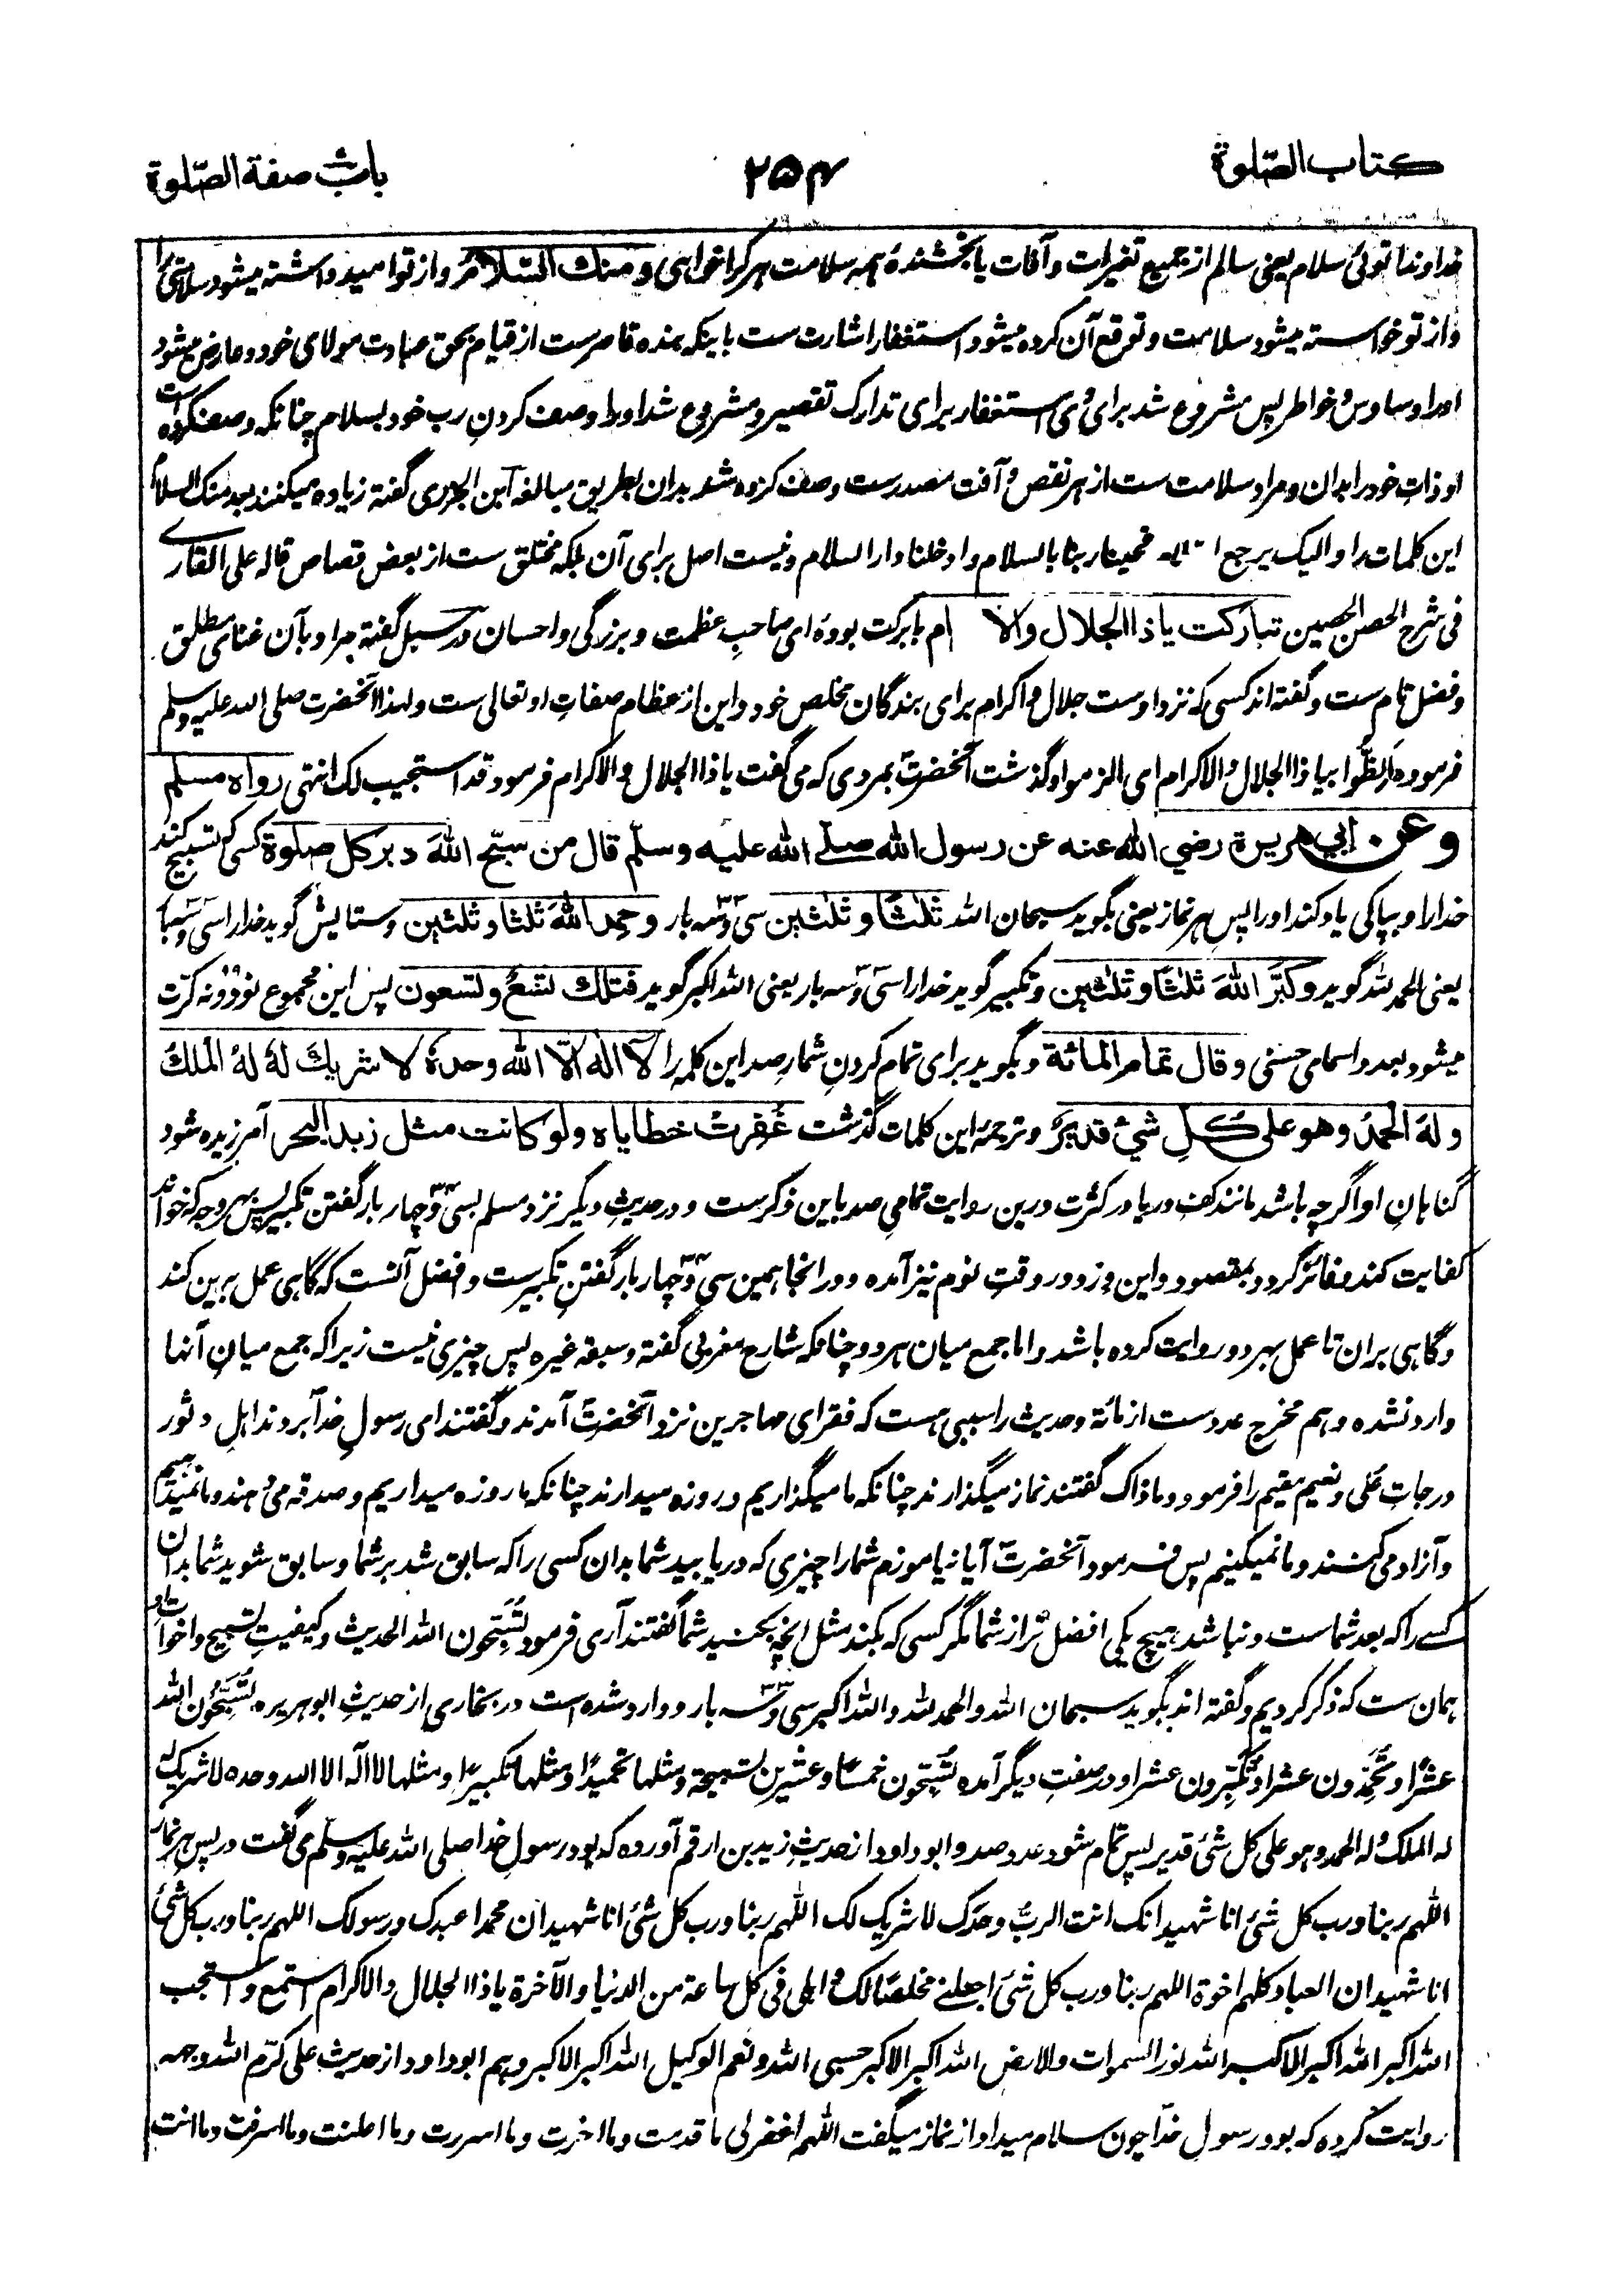 كتاب الصّلوة
۲۵۴
باب صفة الصّلوة
خداوندا توئی سلام یعنی سالم از جمیع تغیرات و آفات یا بخشندهٔ همه سلامت هر کرا خواهی ومنك السّلام و از تو امید داشته میشود سلامتی را
و از تو خواسته میشود سلامت و توقع آن کرده میشود استغفار اشارت ست باینکه بنده قاصرست از قیام بحق عبادت مولای خود و عارض میشود
او را وساوس و خواطر پس مشروع شد برای وی استغفار برای تدارک تقصیر و مشروع شد او را وصف کردنِ رب خود بسلام چنانکه وصف کرده است
او ذاتِ خود را بدان و مراد سلامت ست از هر نقص و آفت مصدرست وصف کرده شد بدان بطریق مبالغه ابن الجزری گفته زیاده میکنند بعد منک السلام
این کلمات را و الیک یرجع السلام فحینا ربنا بالسلام وادخلنا دار السلام و نیست اصل برای آن بلکه مختلق ست از بعض قصاص قاله علی القاری
فی شرح الحصن الحصین تباركت ياذا الجلال والا ام بابرکت بودهٔ ای صاحبِ عظمت و بزرگی و احسان در سبل گفته مراد بآن غنای مطلق
و فضل تام ست و گفته اند کسی که نزد اوست جلال و اکرام برای بندگان مخلص خود و این از عظام صفاتِ او تعالی ست و لهذا آنحضرت صلی الله علیه وسلم
فرموده اَلِظُّوا بیا ذا الجلال و الاکرام ای الزموا و گذشت آنحضرت بمردی که می گفت یا ذا الجلال و الاکرام فرمود قد استجیب لک انتهی رواه مسلم
وعن ابي هريرة رضي الله عنه عن رسول الله صلى الله عليه وسلّم قال من سبّح اللهَ دبر كل صلوة کسی که تسبیح کند
خدارا و بپاکی یاد کند او را پسِ هر نماز یعنی بگوید سبحان الله ثلثًا و ثلثين سی و سه بار وحمد اللهَ ثلثا و ثلثين و ستایش گوید خدا را سی و سه بار
یعنی الحمد لله گوید وكبّر اللهَ ثلثًا و ثلثين و تکبیر گوید خدا را سی و سه بار یعنی الله اکبر گوید فتلك تسعٌ وتسعون پس این مجموع نود و نه کرت
میشود بعدد اسمای حسنی وقال تمام المائة و بگوید برای تمام کردنِ شمارِ صد این کلمه را لا اله الّا الله وحدهٗ لا شريك لهٗ لهُ الملكُ
ولهُ الحمدُ وهو على كلِ شيءٍ قديرٌ و ترجمهٔ این کلمات گذشت غُفِرتْ خطاياه ولو كانت مثل زبد البحر آمرزیده شود
گناهانِ او اگرچه باشد مانند کفِ دریا در کثرت درین روایت تمامیِ صد باین ذکرست و در حدیثِ دیگر نزد مسلم بسی و چهار بار گفتن تکبیر پس بهر وجه که خواند
کفایت کند و فائز گردد بمقصود و این ورد در وقتِ نوم نیز آمده و در انجا همین سی و چهار بار گفتنِ تکبیرست و افضل آنست که گاهی عمل برین کند
و گاهی بران تا عمل بهر دو روایت کرده باشد و اما جمع میان هر دو چنانکه شارح مغربی گفته و سبقه غیره پس چیزی نیست زیرا که جمع میانِ آنها
وارد نشده و هم مخرج عددست از مائة و حدیث را سببی هست که فقرای مهاجرین نزد آنحضرت آمدند و گفتند ای رسولِ خدا بردند اهلِ دثور
درجاتِ عُلی و نعیم مقیم را فرمود و ما ذاک گفتند نماز میگذارند چنانکه ما میگذاریم و روزه میدارند چنانکه ما روزه میداریم و صدقه می دهند و ما نمیدهیم
و آزاد می کنند و ما نمیکنیم پس فرمود آنحضرت آیا نیاموزم شما را چیزی که دریابید شما بدان کسی را که سابق شد بر شما و سابق شوید شما بدان
کسے را که بعد شماست و نباشد هیچ یکی افضل تر از شما مگر کسی که بکند مثل انچه بکنید شما گفتند آری فرمود تُسَبِّحون الله الحدیث و کیفیتِ تسبیح و اخوات او
همان ست که ذکر کردیم و گفته اند بگوید سبحان الله و الحمد لله و الله اکبر سی و سه بار و وارد شده است در بخاری از حدیثِ ابوهریره تُسَبِّحُون الله
عشرًا و تُحَمِّدون عشرا و تُکَبِّرون عشرا و در صفتِ دیگر آمده تُسَبِّحون خمسًا و عشرین تسبیحة و مثلها تحمیدًا و مثلها تکبیرًا و مثلها لا اله الا الله وحده لا شریک له
له الملک و له الحمد و هو علی کل شیء قدیر پس تمام شود عدد صد و ابوداود از حدیثِ زید بن ارقم آورده که بود رسولِ خدا صلی الله علیه وسلم می گفت در پسِ هر نماز
اللّهم ربنا ورب کل شیء انا شهید انک انت الربُّ وحدَک لا شریک لک اللّهم ربنا ورب کل شیء انا شهید ان محمدا عبدک ورسولک اللهم ربنا ورب کل شیء
انا شهید ان العباد کلهم اخوة اللهم ربنا ورب کل شیء اجعلنے مخلصًا لک و اهلی فی کل ساعة من الدنیا والآخرة یا ذا الجلال والاکرام استمع و استجب
الله اکبر الله اکبر الاکبر الله نور السموات والارض الله اکبر الاکبر حسبی الله ونعم الوکیل الله اکبر الاکبر و هم ابوداود از حدیثِ علی کرّم الله وجهه
روایت کرده که بود رسولِ خدا چون سلام میداد از نماز میگفت اللّهم اغفر لی ما قدمت وما اخرت وما اسررت وما اعلنت وما اسرفت وما انت